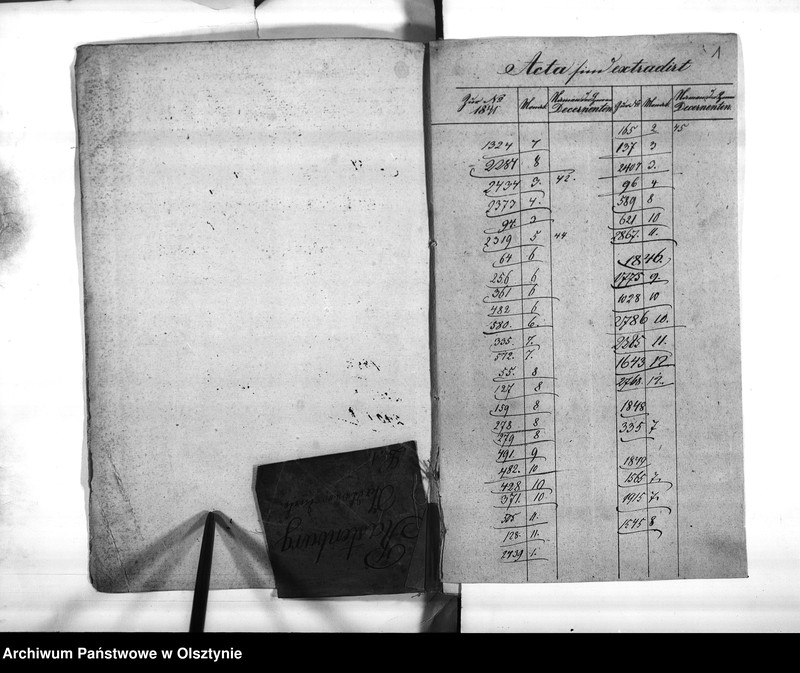 1
Acta sind extradirt
Zur No 1841 Monat Namen d. Decernenten
1324 7
2287 8
2434 3. 42.
2373 4.
94. 3
2319 5 44
64 6
256 6
361 6
482 6
580. 6.
335 7.
572. 7.
55. 8
127 8
159 8
278 8
279 8
491. 9
482. 10
428 10
371. 10
515 11.
128. 11.
2739 1.
Zur No Monat Namen d. Decernenten
165 2 45
137 3
2407 3.
96 4
589 8
621 10
2867. 11.
1846.
1775 9.
1028 10
2786 10.
2385 11.
1643 12
2768. 12.
1848
335 7
1849
1565 7.
1915 7.
1545 8
Rastenburg
Archiwum Państwowe w Olsztynie